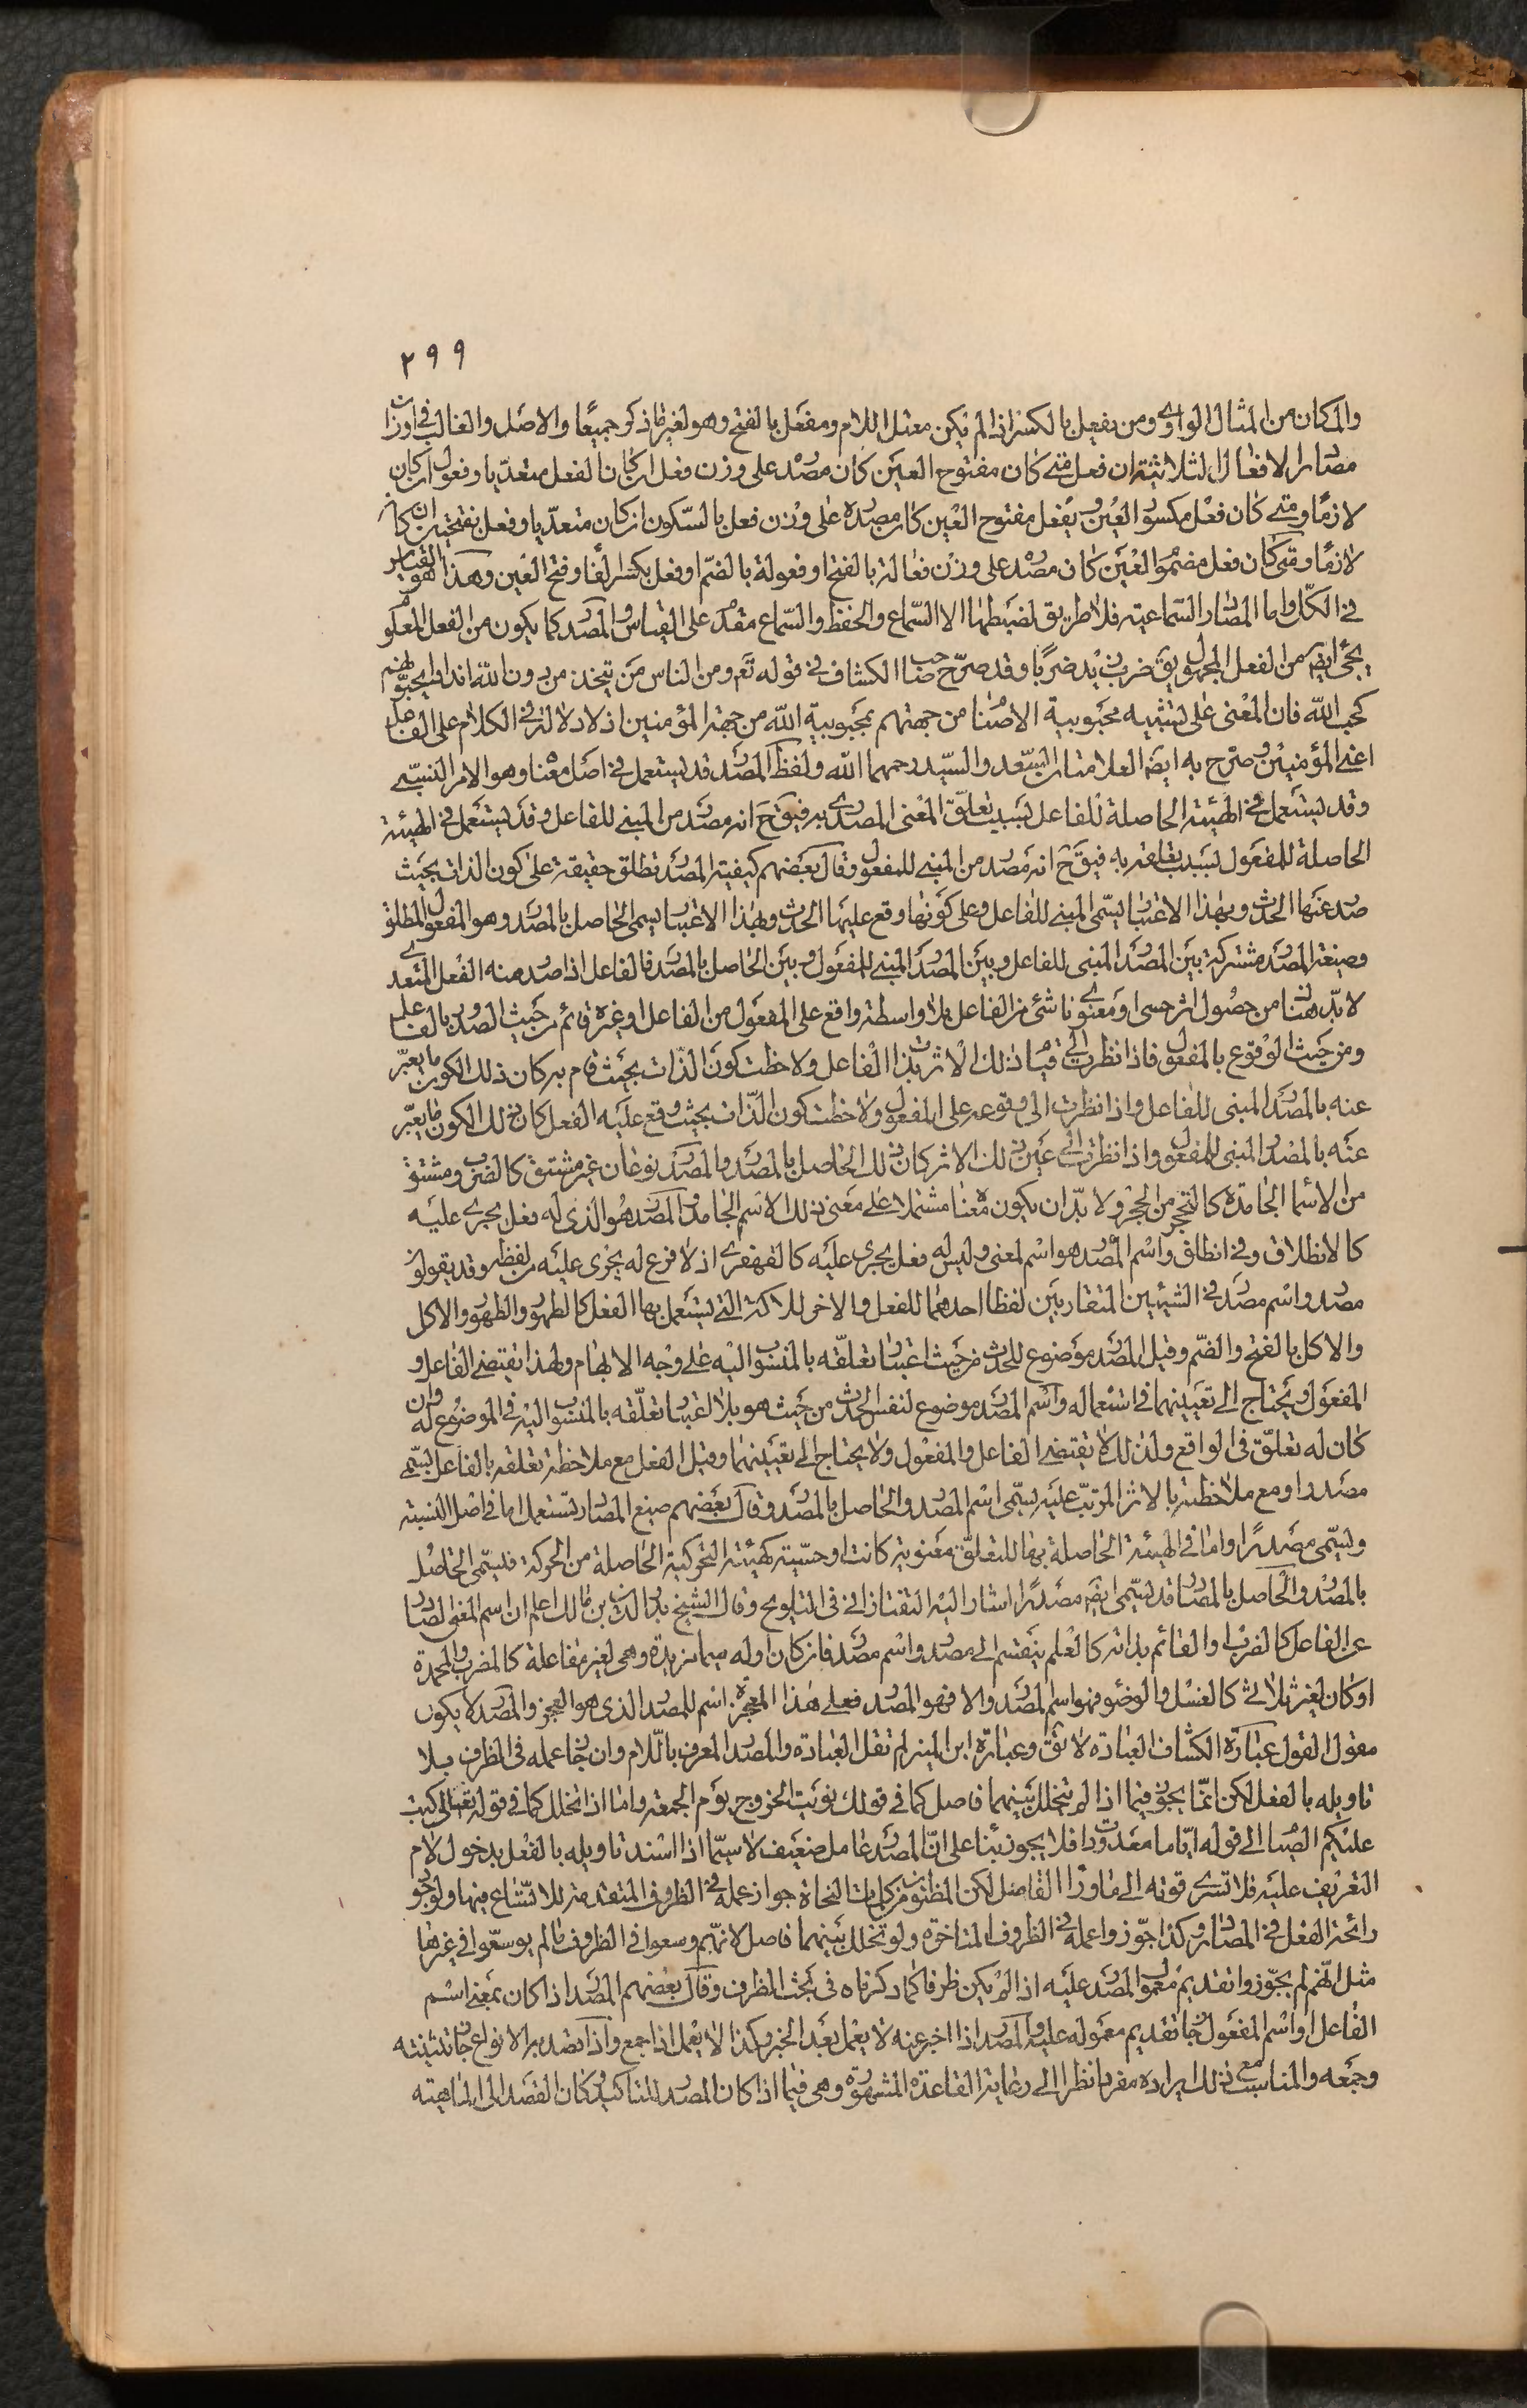 ٢٩٩
والمكان من المثال الواوى ومن يفعل بالكسر اذا لم يكن معتل اللام ومفعل بالفتح وهو لغير ما ذكر جميعا والاصل والغالب فى اوزان
مصادر الافعال الثلاثية ان فعل متى كان مفتوح العين كان مصدره على وزن فعل ان كان الفعل متعديا وفعول ان كان
لازما ومتى كان فعل مكسور العين ويفعل مفتوح العين كان مصدره على وزن فعل بالسكون ان كان متعديا وفعل بفتحتين ان كان
لازما ومتى كان فعل مضموم العين كان مصدره على وزن فعالة بالفتح او فعولة بالضم او فعل بكسر الفا وفتح العين وهذا هو القياس
فى الكل واما المصادر السماعية فلا طريق لضبطها الا السماع والحفظ والسماع مقدم على القياس والمصدر كما يكون من الفعل المعلوم
يجئ ايضا من الفعل المجهول يق ضرب زيد ضربا وقد صرح صاحب الكشاف فى قوله تع ومن الناس من يتخذ من دون الله اندادا يحبونهم
كحب الله فان المعنى على تشبيه محبوبية الاصنام من جهتهم بمحبوبية الله من جهة المؤمنين اذ لا دلالة فى الكلام على الفاعل
اعنى المؤمنين وصرح به ايضا العلامتان السعد والسيد رحمهما الله ولفظ المصدر قد يستعمل فى اصل معناه وهو الامر النسبى
وقد يستعمل فى الهيئة الحاصلة للفاعل بسبب تعلق المعنى المصدرى به فيق ح انه مصدر من المبنى للفاعل وقد يستعمل فى الهيئة
الحاصلة للمفعول بسبب تعلقه به فيق ح انه مصدر من المبنى للمفعول وقال بعضهم كيفية المصدر تطلق حقيقة على كون الذات بحيث
صدر عنها الحدث وبهذا الاعتبار يسمى المبنى للفاعل وعلى كونها وقع عليها الحدث وبهذا الاعتبار يسمى الحاصل بالمصدر وهو المفعول المطلق
وصيغة المصدر مشتركة بين المصدر المبنى للفاعل وبين المصدر المبنى للمفعول وبين الحاصل بالمصدر فالفاعل اذا صدر منه الفعل المتعدى
لا بد هنا من حصول اثر حسى او معنوى ناشئ من الفاعل بلا واسطة واقع على المفعول من الفاعل او غيره قائم من حيث الصدور بالفاعل
ومن حيث الوقوع بالمفعول فاذا نظرت الى قيام ذلك الاثر بذات الفاعل ولاحظت كون الذات بحيث قام به كان ذلك الكون ما يعبر
عنه بالمصدر المبنى للفاعل واذا نظرت الى وقوعه على المفعول ولاحظت كون الذات بحيث وقع عليه الفعل كان ذلك الكون ما يعبر
عنه بالمصدر المبنى للمفعول واذا نظرت الى عين ذلك الاثر كان ذلك الحاصل بالمصدر والمصدر نوعان غير مشتق كالضرب ومشتق
من الاسما الجامدة كالتحجر من الحجر ولا بد ان يكون معناه مشتملا على معنى ذلك الاسم الجامد والمصدر هو الذى له فعل يجرى عليه
كالانطلاق وفى انطلق واسم المصدر هو اسم لمعنى وليس له فعل يجرى عليه كالقهقرى اذ لا فرع له يجرى عليه من لفظه وقد يقولون
مصدر واسم مصدر فى الشيئين المتقاربين لفظا احدهما للفعل والاخر للالة التى يستعمل بها الفعل كالطهور والطهور والاكل
والاكل بالفتح والضم وقيل المصدر موضوع للحدث من حيث اعتبار تعلقه بالمنسوب اليه على وجه الابهام ولهذا يقتضى الفاعل و
المفعول ويحتاج الى تعيينهما فى استعماله واسم المصدر موضوع لنفس الحدث من حيث هو بلا اعتبار تعلقه بالمنسوب اليه فى الموضوع له وان
كان له تعلق فى الواقع ولذلك لا يقتضى الفاعل والمفعول ولا يحتاج الى تعيينهما وقيل الفعل مع ملاحظة تعلقه بالفاعل يسمى
مصدرا ومع ملاحظته بالاثر المرتب عليه يسمى اسم المصدر والحاصل بالمصدر وقال بعضهم صيغ المصادر تستعمل اما فى اصل النسبة
ويسمى مصدرا واما فى الهيئة الحاصلة بها للتعلق معنوية كانت او حسية كهيئة التحركية الحاصلة من الحركة فيسمى الحاصل
بالمصدر والحاصل بالمصدر قد يسمى ايضا مصدرا اشار اليه التفتازانى فى التلويح وقال الشيخ بدر الدين بن مالك اعلم ان اسم المعنى الصادر
عن الفاعل كالضرب او القائم بذاته كالعلم ينقسم الى مصدر واسم مصدر فان كان اوله ميما مزيدة وهى لغير مفاعلة كالمضرب والمحمدة
او كان لغير ثلاثى كالغسل والوضوء فهو اسم المصدر والا فهو المصدر فعلى هذا المعجزة اسم للمصدر الذى هو العجز والمصدر لا يكون
مقول القول عبارة الكشاف العبادة لا تق وعبارة ابن المنير لم تقل العبادة والمصدر المعرف باللام وان جاز عمله فى الظرف بلا
تاويله بالفعل لكن انما يجوز فيما اذا لم يتخلل بينهما فاصل كما فى قولك نويت الخروج يوم الجمعة واما اذا تخلل كما فى قوله تعالى كتب
عليكم الصيام الى قوله اياما معدودات فلا يجوز بناء على ان المصدر عامل ضعيف لا سيما اذا اشتد تاويله بالفعل بدخول لام
التعريف عليه فلا تسرى قوته الى ما وراء الفاصل لكن المظنون من كلمات النحاة جواز عمله فى الظروف المتقدمة للاتساع فيها ولوجود
رائحة الفعل فى المصادر وكذا جوزوا عمله فى الظروف المتاخرة ولو تخلل بينهما فاصل لانهم وسعوا فى الظروف ما لم يوسعوا فى غيرها
مثل انهم لم يجوزوا تقديم معمول المصدر عليه اذا لم يكن ظرفا كما ذكرناه فى بحث الظرف وقال بعضهم المصدر اذا كان بمعنى اسم
الفاعل او اسم المفعول جاز تقديم معموله عليه والمصدر اذا اخبر عنه لا يعمل بعد الخبر وكذا لا يعمل اذا جمع واذا قصد به الانواع جاز تثنيته
وجمعه والمناسب مع ذلك ايراده مفردا نظرا الى رعاية القاعدة المشهورة وهى فيما اذا كان المصدر للتاكيد وكان القصد الى الماهية